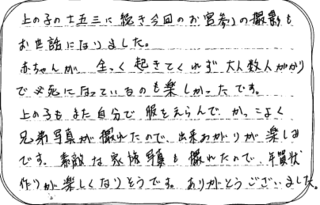 上の子の七五三に続き今回のお宮参りの撮影も
お世話になりました。
赤ちゃんが、全く起きてくれず大人数人がかり
で必死になっているのも楽しかったです。
上の子もまた自分で服をえらんで、かっこよく
兄弟写真が撮れたので、出来あがりが楽しみ
です。素敵な家族写真も撮れたので、年賀状
作りが楽しくなりそうです。ありがとうございました。